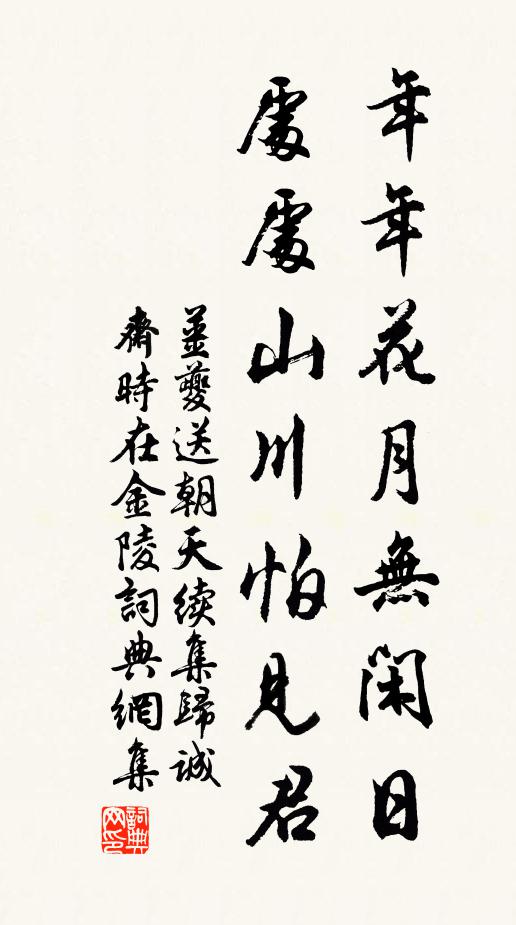 年年花月無閑日
處處山川怕見君
姜夔送朝天续集歸誠
齋時在金陵詞典網集
詞典
网印